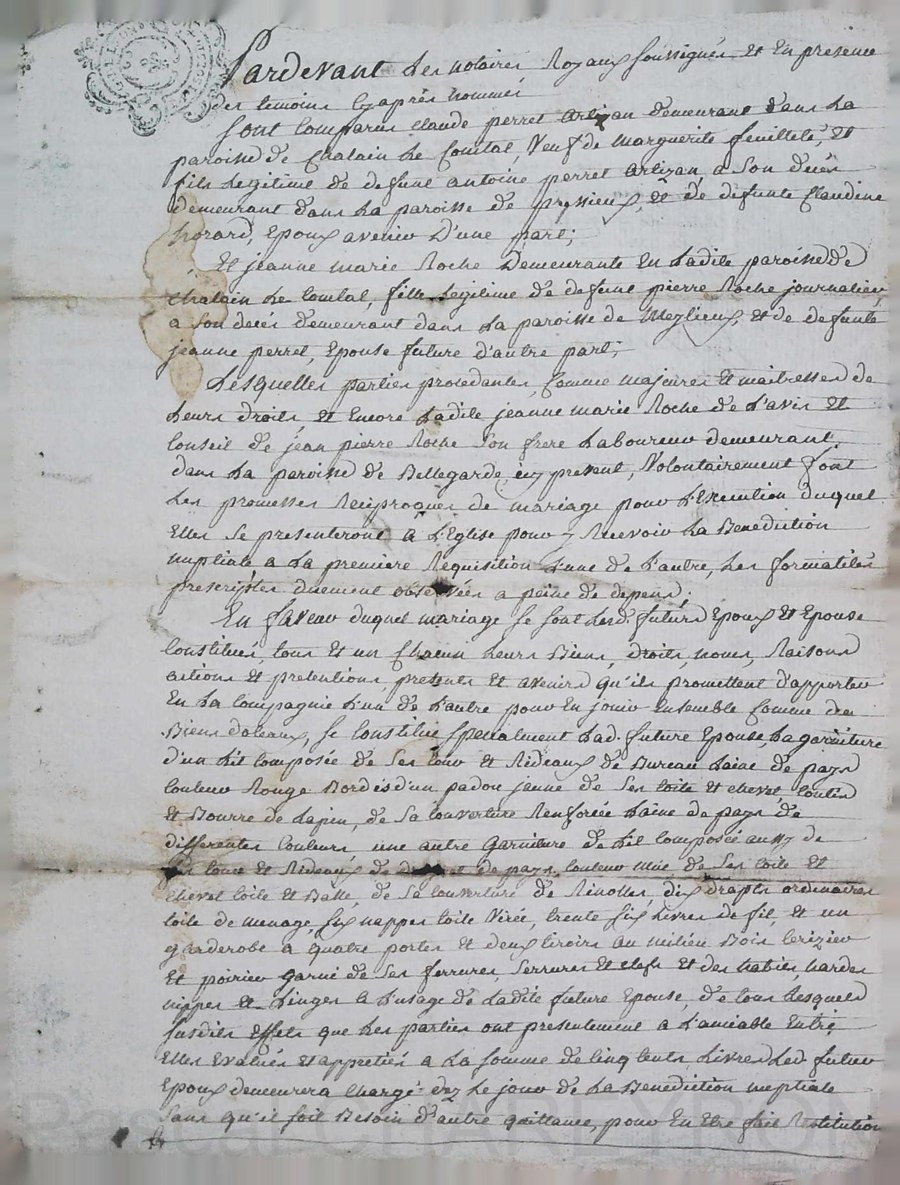 Pardevant Les notaires Royaux soussignés et En presence
des temoins Cyaprès nommés
sont Comparus claude perret artizan demeurant dans La
paroisse de Chalain Le Comtal, Veuf de Marguerite feuillete, et
fils Legitime de defunt antoine perret artizan, a son décés
demeurant dans La paroisse de precieux, et de defunte Claudine
, Epoux avenir D'une part;
Et jeanne marie Roche Demeurante En Ladite paroisse de
Chalain Le Comtal, fille Legitime de defunt pierre Roche journalier,
a son decés demeurant dans La paroisse de Meylieux, et de defunte
jeanne perret, Epouse future d'autre part;
Lesquelles parties procedantes, Comme majeures et maitresses de
Leurs droits, et Encore Ladite jeanne marie Roche de L'avis et
Conseil de jean pierre Roche Son frere Laboureur demeurant,
dans La paroisse de Bellegarde, icy present, Volontairement font
Les promesses Réciproques de mariage pour L'Execution duquel
Elles se presenteront a L'Eglise pour y Recevoir La Benediction
nuptiale a La premiere Requisition L'une de L'autre, Les formalités
prescriptes duement observées a peine de depens;
En faveur duquel mariage se sont Lesd. futurs Epoux et Epouse
Constitués, tous et un Chacun Leurs Biens, droits, noms, Raisons
actions et pretentions, presents et avenirs qu'ils promettent d'apporter
En La Compagnie L'un de L'autre pour En jouir Ensemble Comme de
Biens dotaux, se Constitue specialement Lad. future Epouse, La garniture
d'un Lit Composée de Ses tour et Rideaux de Bureau Laine de pays
Couleur Rouge Bordés d'un padou jaune de Ses Coite et chevet, Coutis
et Bourre de Lapin, de Sa Couverture Renforcée Laine de pays de
differentes Couleurs une autre Garniture de Lit Composée aussy de
Ses tour et Rideaux de de pays, Couleur de Ses Coite et
chevet toile et Balle, de Sa Couverture de , dix draps ordinaires
toile de menage, six nappes toile , trente six Livres de fil, et un
garderobe a quatre portes et deux tiroirs au milieu Bois Cerizier
et poirier garni de Ses ferrures, Serrures et clefs et des habits hardes
nippes et Linges a L'usage de Ladite future Epouse, de tous Lesquels
susdits Effets que Les parties ont presentement a L'amiable Entre
Elles Evalués et appretiés a La somme de Cinq Cents Livres Led. futur
Epoux demeurera Chargé dez Le jour de La Benediction nuptiale
sans qu'il soit Besoin d'autre quittance, pour En Etre fait Restitution